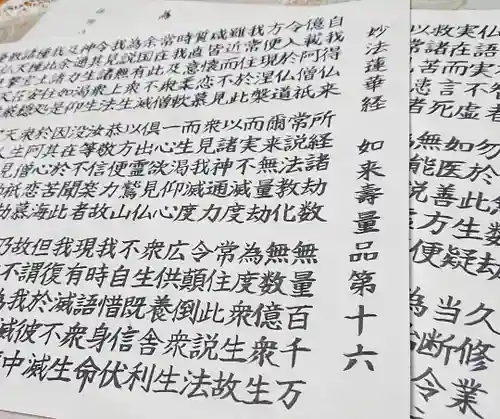 妙法蓮華経 如来壽量品第十六
自我得仏来 所経諸劫数 無量百千万
億載阿僧祇 常説法教化 無数億衆生
令入於仏道 爾来無量劫 為度衆生故
方便現涅槃 而実不滅度 常住此説法
我常住於此 以諸神通力 令顛倒衆生
難近而不見 衆見我滅度 広供養舎利
咸皆懐恋慕 而生渇仰心 衆生既信伏
質直意柔軟 一心欲見仏 不自惜身命
時我及衆僧 俱出霊鷲山 我時語衆生
常在此不滅 以方便力故 現有滅不滅
余国有衆生 恭敬信楽者 我復於彼中
為説無上法 汝等不聞此 但謂我滅
我見諸衆生 没在於苦海 故不為
久修業
勿於此生疑 当断令
仏語実不虚 如医善方便 為
実在而言死 無能説
救諸苦患者
以常